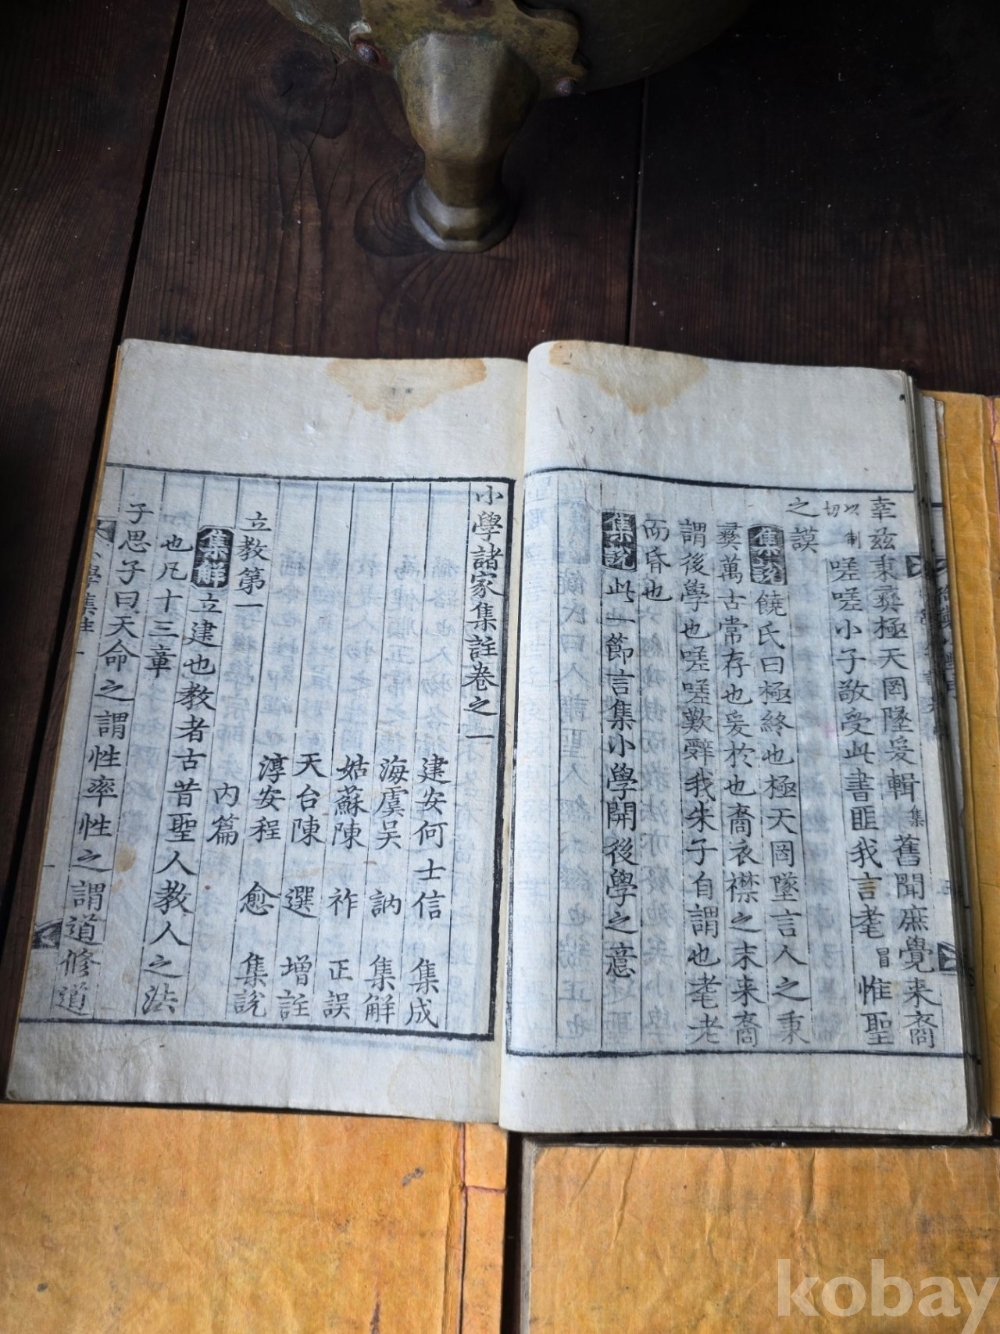 幸玆秉彛極天罔墜爰輯集舊聞庶覺来裔
嗟嗟小子敬受此書匪我言耄冒惟聖
之謨
集說饒氏曰極終也極天罔墜言人之秉
彛萬古常存也爰於也裔衣襟之末来裔
謂後學也嗟嗟歎辭我朱子自謂也耄老
而昏也
集說此一節言集小學開後學之意
小學諸家集註卷之一
建安何士信 集成
海虞吳 訥 集解
姑蘇陳 祚 正誤
天台陳 選 增註
淳安程 愈 集說
立教第一 內篇
集解立建也教者古昔聖人教人之法
也凡十三章
子思子曰天命之謂性率性之謂道修道
kobay